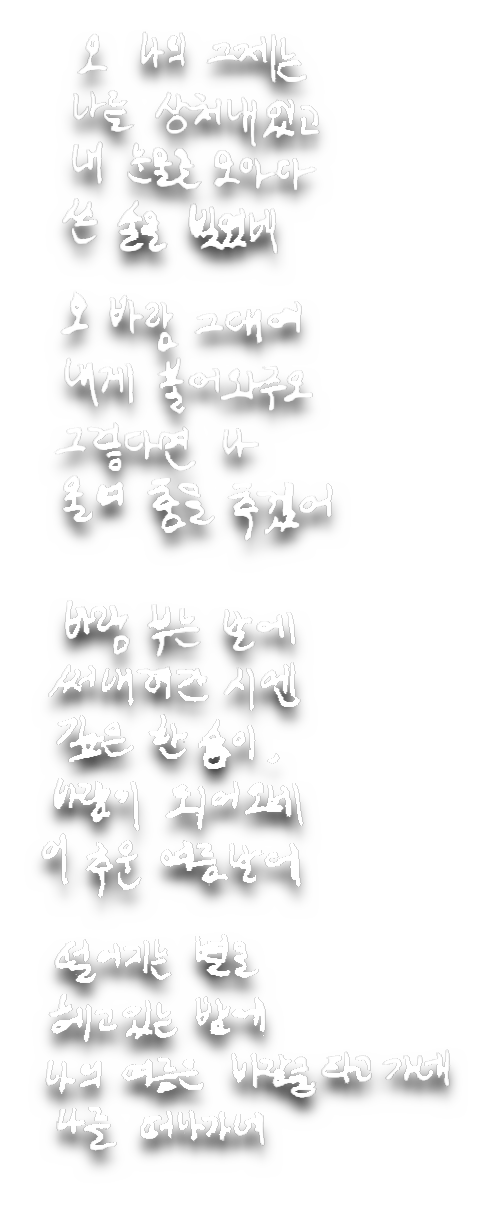 오 나의 그제는
나를 상처내었고
내 눈물은 모아다
쓴 술을 빚었네
오 바람 그대여
내게 불어와주오
그렇다면 나
울며 춤을 추겠어
바람 부는 날에
써내려간 시엔
깊은 한숨이
바람이 되어오네
이 추운 여름날에
떨어지는 별을
헤고있는 밤에
나의 여름은 바람을 타고 가네
나를 떠나가네